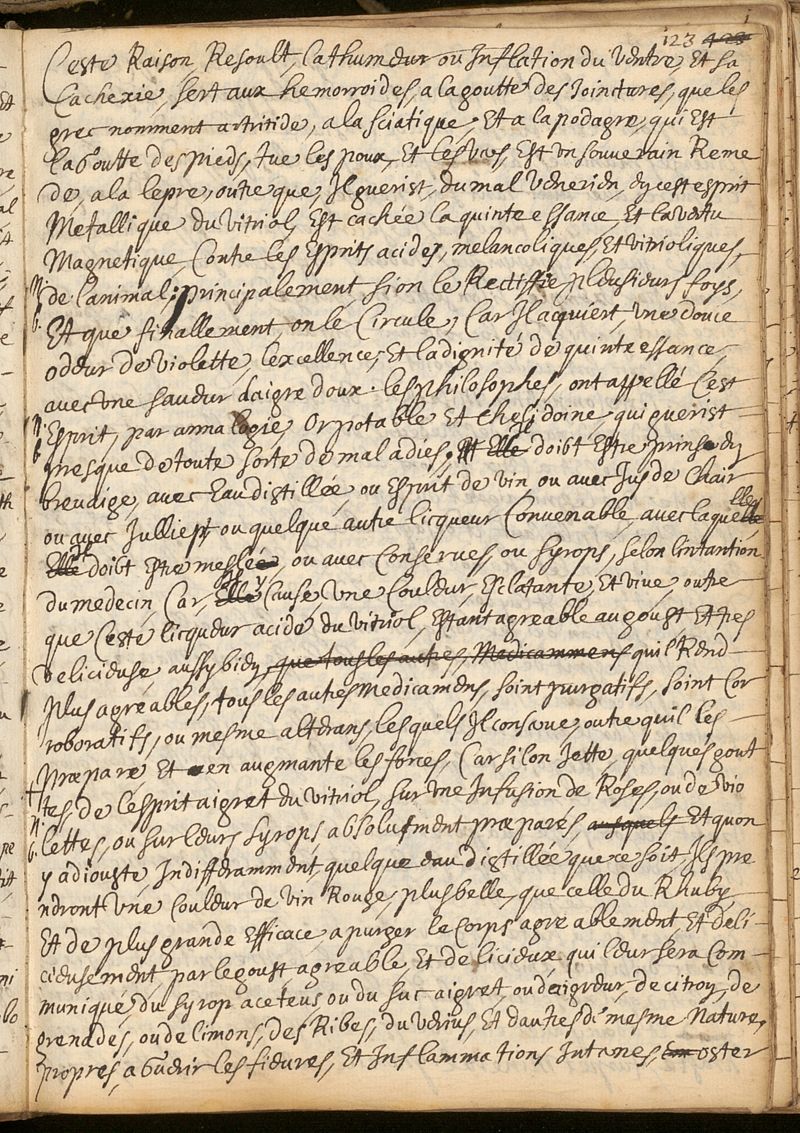 123 423
Ceste Raison Resoult, Cathumeur ou Inflation du Ventre, Et sa
Cachexie, sert aux hemorroides, a la goutte des Iointures, que les
grec nomment artritide, a la sciatique, Et a la podagre, qui Est
la Goutte des pieds, tue les poux, Et les vers, Est un souverain Reme
de, a la lepre, outre que, Il guerist, du mal Venerien, en cest esprit
Metallique du Vitriol, Est cachée la quinte essance, Et la vertu
Magnetique Contre les Esprits acides, melancoliques, Et vitrioliques,
N. de l'animal; principalement, si on le Rectiffie plusieurs foys,
b. Et que finallement, on le Circule, Car Il acquiert, une douce
odeur de violette, lexcellence, Et la dignité de quinte essance,
avec une saueur daigre doux. les philosophes, ont appellé Cest
N. Esprit, par annalogie, Or potable, Et Chelidoine, qui guerist
b. presque de toute sorte de maladies, Et Elle doibt Estre prinse en
breuaige, avec Eau distillée, ou Esprit de vin ou avec Jus de Chair
ou avec Julliept ou quelque autre licqueur Convenable, avec laquelle
Elle doibt Estre meslée, ou avec Conserves, ou syrops, selon lintantion
du medecin, Car, Elle Cause, Une Couleur, Esclatante, Et vive, outre
que Ceste licqueur acide du vitriol, Estant agreable au goust Et tres
delicieuse, aussy bien, que tous les autres Medicammens quil Rend
plus agreables, tous les autres medicamens, soint purgatifs, soint Cor
roboratifs, ou mesme alterans, lesquels Il conserue, outre quil les
+ præpare Et en augmante les forces, Car si lon Jette, quelques gout
tes, de l'esprit aigret du vitriol, sur une Infusion de Roses, ou de vio
N. b. lettes, ou sur leurs syrops, absolument præparés, ausquels Et quon
y adiouste, Indifferamment, quelque eau distillée que ce soit, Ils pre
ndront Une Couleur de vin Rouge, plus belle, que celle du Rhuby,
Et de plus grande Efficace, a purger le Corps agreablement, Et deli
cieusement, par le goust agreable, Et delicieux qui leur sera Com
muniqué, du syrop aceteus ou du suc aigret, ou daigreur, de citron, de
grenades, ou de limons, des Ribes, du verius, Et dautres de mesme Nature,
propres, a Guerir les fieures, Et Inflammations Internes, oster